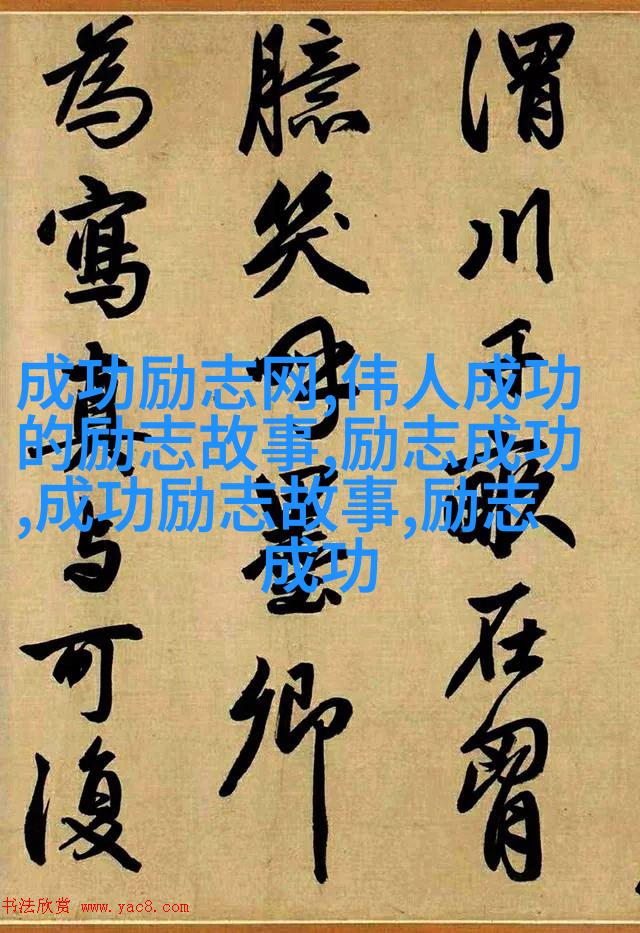 渭川千畝在胷
臆笑呼墨卿
為寫真与可復
成功励志网,伟人成功
的励志故事,励志成功
,成功励志故事,励志
成功
书法欣赏 www.yac8.com